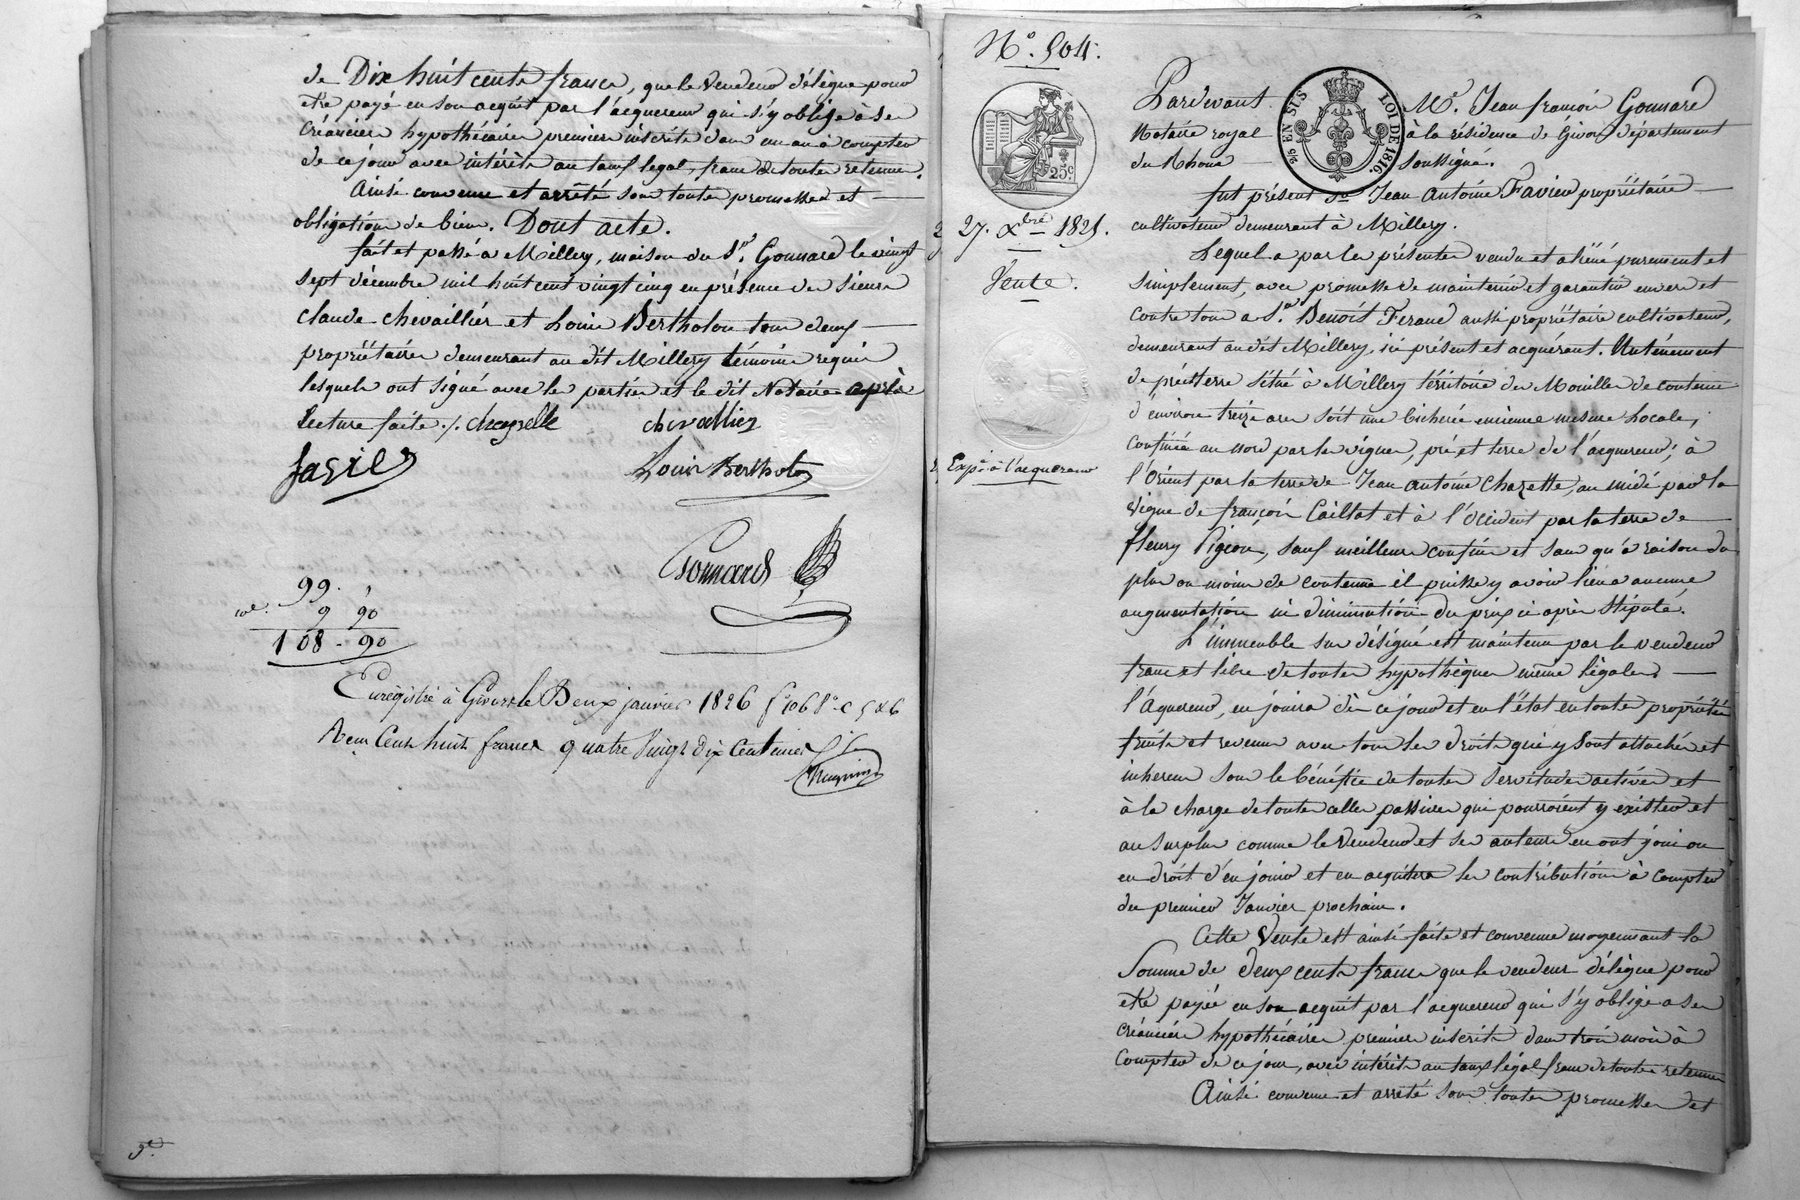 de Dix huit cents francs, que le Vendeur délègue pour
être payé en son acquit par l'acquereur qui s'y oblige à ses
Créanciers hypothécaires premiers inscrits dans un an à compter
de ce jour avec intérêts au taux legal, franc de toute retenue.
Ainsi convenu et arrêté sous toutes promesses et
obligations de biens. Dont acte.
fait et passé à Millery, maison du Sr. Gonnard le vingt
sept décembre mil huit cent vingt cinq en présence des sieurs
Claude Chevaillier et Louis Bertholon tous deux
propriétaires demeurant au dit Millery témoins requis
lesquels ont signé avec les parties et le dit Notaire après
Lecture faite ./.
chevallier
Louis Bertholon
Gonnard
99.
9 90
108 - 90
Enregistré à Givors le Deux janvier 1826
Reçu Cent huit francs quatre Vingt Dix Centimes
3e.
No. 504.
25c
27. Xbre 1825.
Vente.
Expé. à l'acquereur
2/5 EN SUS
LOI DE 1816.
Pardevant Me. Jean françois Gonnard
Notaire royal à la résidence de Givors département
du Rhone soussigné.
fut présent Sr. Jean Antoine Favier propriétaire
cultivateur demeurant à Millery.
Lequel a par les présentes vendu et aliéné purement et
simplement, avec promesse de maintenir et garantir envers et
contre tous a Sr. Benoit Feraud aussi propriétaire cultivateur,
demeurant au dit Millery, ici présent et acquérant. Un ténement
de pré et terre situé à Millery térritoire des Mouilles de contenue
d'environ treize ares soit une bicherée ancienne mesure locale,
confinée au nord par les vigne, pré et terre de l'acquereur; à
l'Orient par la terre de Jean Antoine Chazette, au midi par la
vigne de françois Caillat et à l'Occident par la terre de
fleury Pigeon, sauf meilleurs confins et sans qu'à raison du
plus ou moins de contenue il puisse y avoir lieu a aucune
augmentation ni diminution du prix ci après stipulé.
L'immeuble sus désigné est maintenu par le vendeur
franc et libre de toutes hypothèques même légales.
l'Aquereur, en jouira dès ce jour et en l'état en toute propriété
fruits et revenus avec tous les droits qui y sont attachés et
inherens sous le bénéfice de toutes servitudes actives et
à la charge de toutes celles passives qui pourroient y exister et
au surplus comme le Vendeur et ses auteurs en ont joui ou
eu droit d'en jouir et en acquittera les contributions à compter
du premier Janvier prochain.
Cette Vente est ainsi faite et convenue moyennant la
Somme de deux cents francs que le vendeur délègue pour
être payée en son acquit par l'acquereur qui s'y oblige a ses
créanciers hypothécaires premiers inscrits dans trois mois à
compter de ce jour, avec intérêts au taux légal franc de toute retenue
Ainsi convenu et arrêté sous toutes promesses et